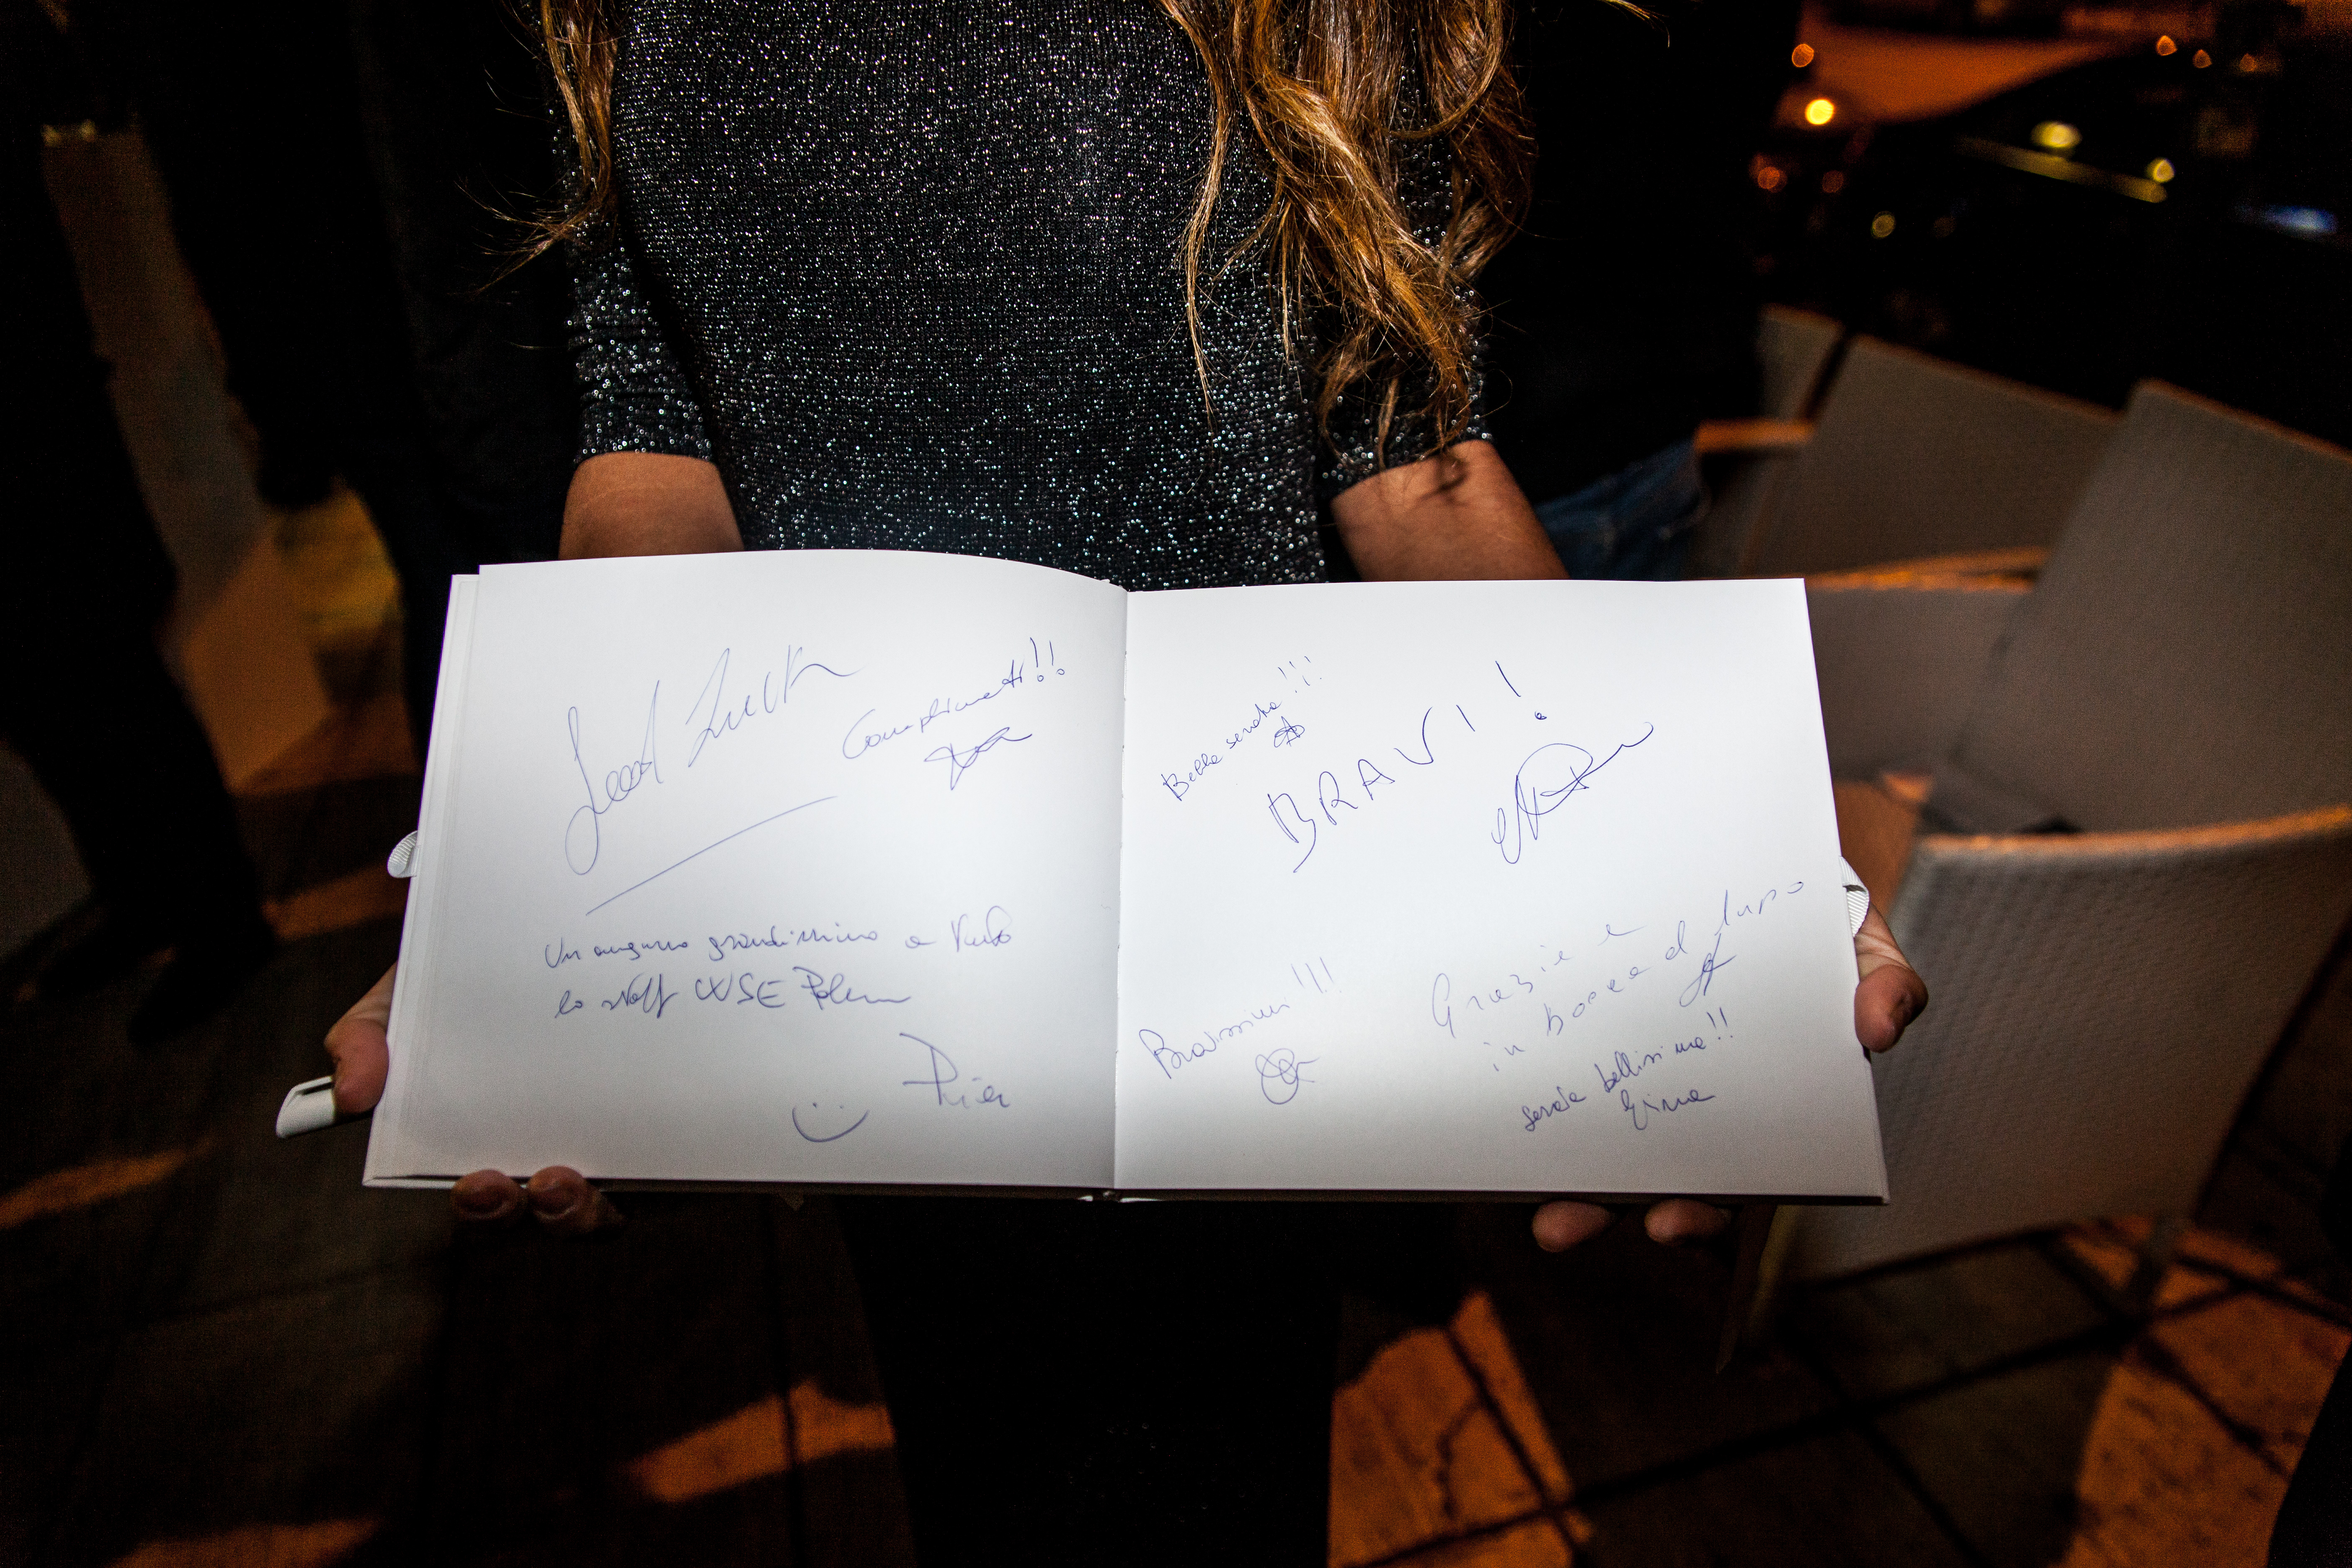 Complimenti!!
Un augurio grandissimo a
lo staff WSE
Bella serata!!!
BRAVI!
Bravissimi!!!
Grazie e
in bocca al lupo
serata bellissima!!